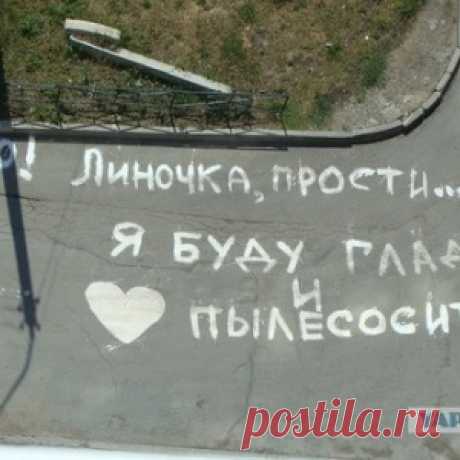 Ю! ЛИНОЧКА, ПРОСТИ...
Я БУДУ ГЛАД
И
ПЫЛЕСОСИТ
postila.ru